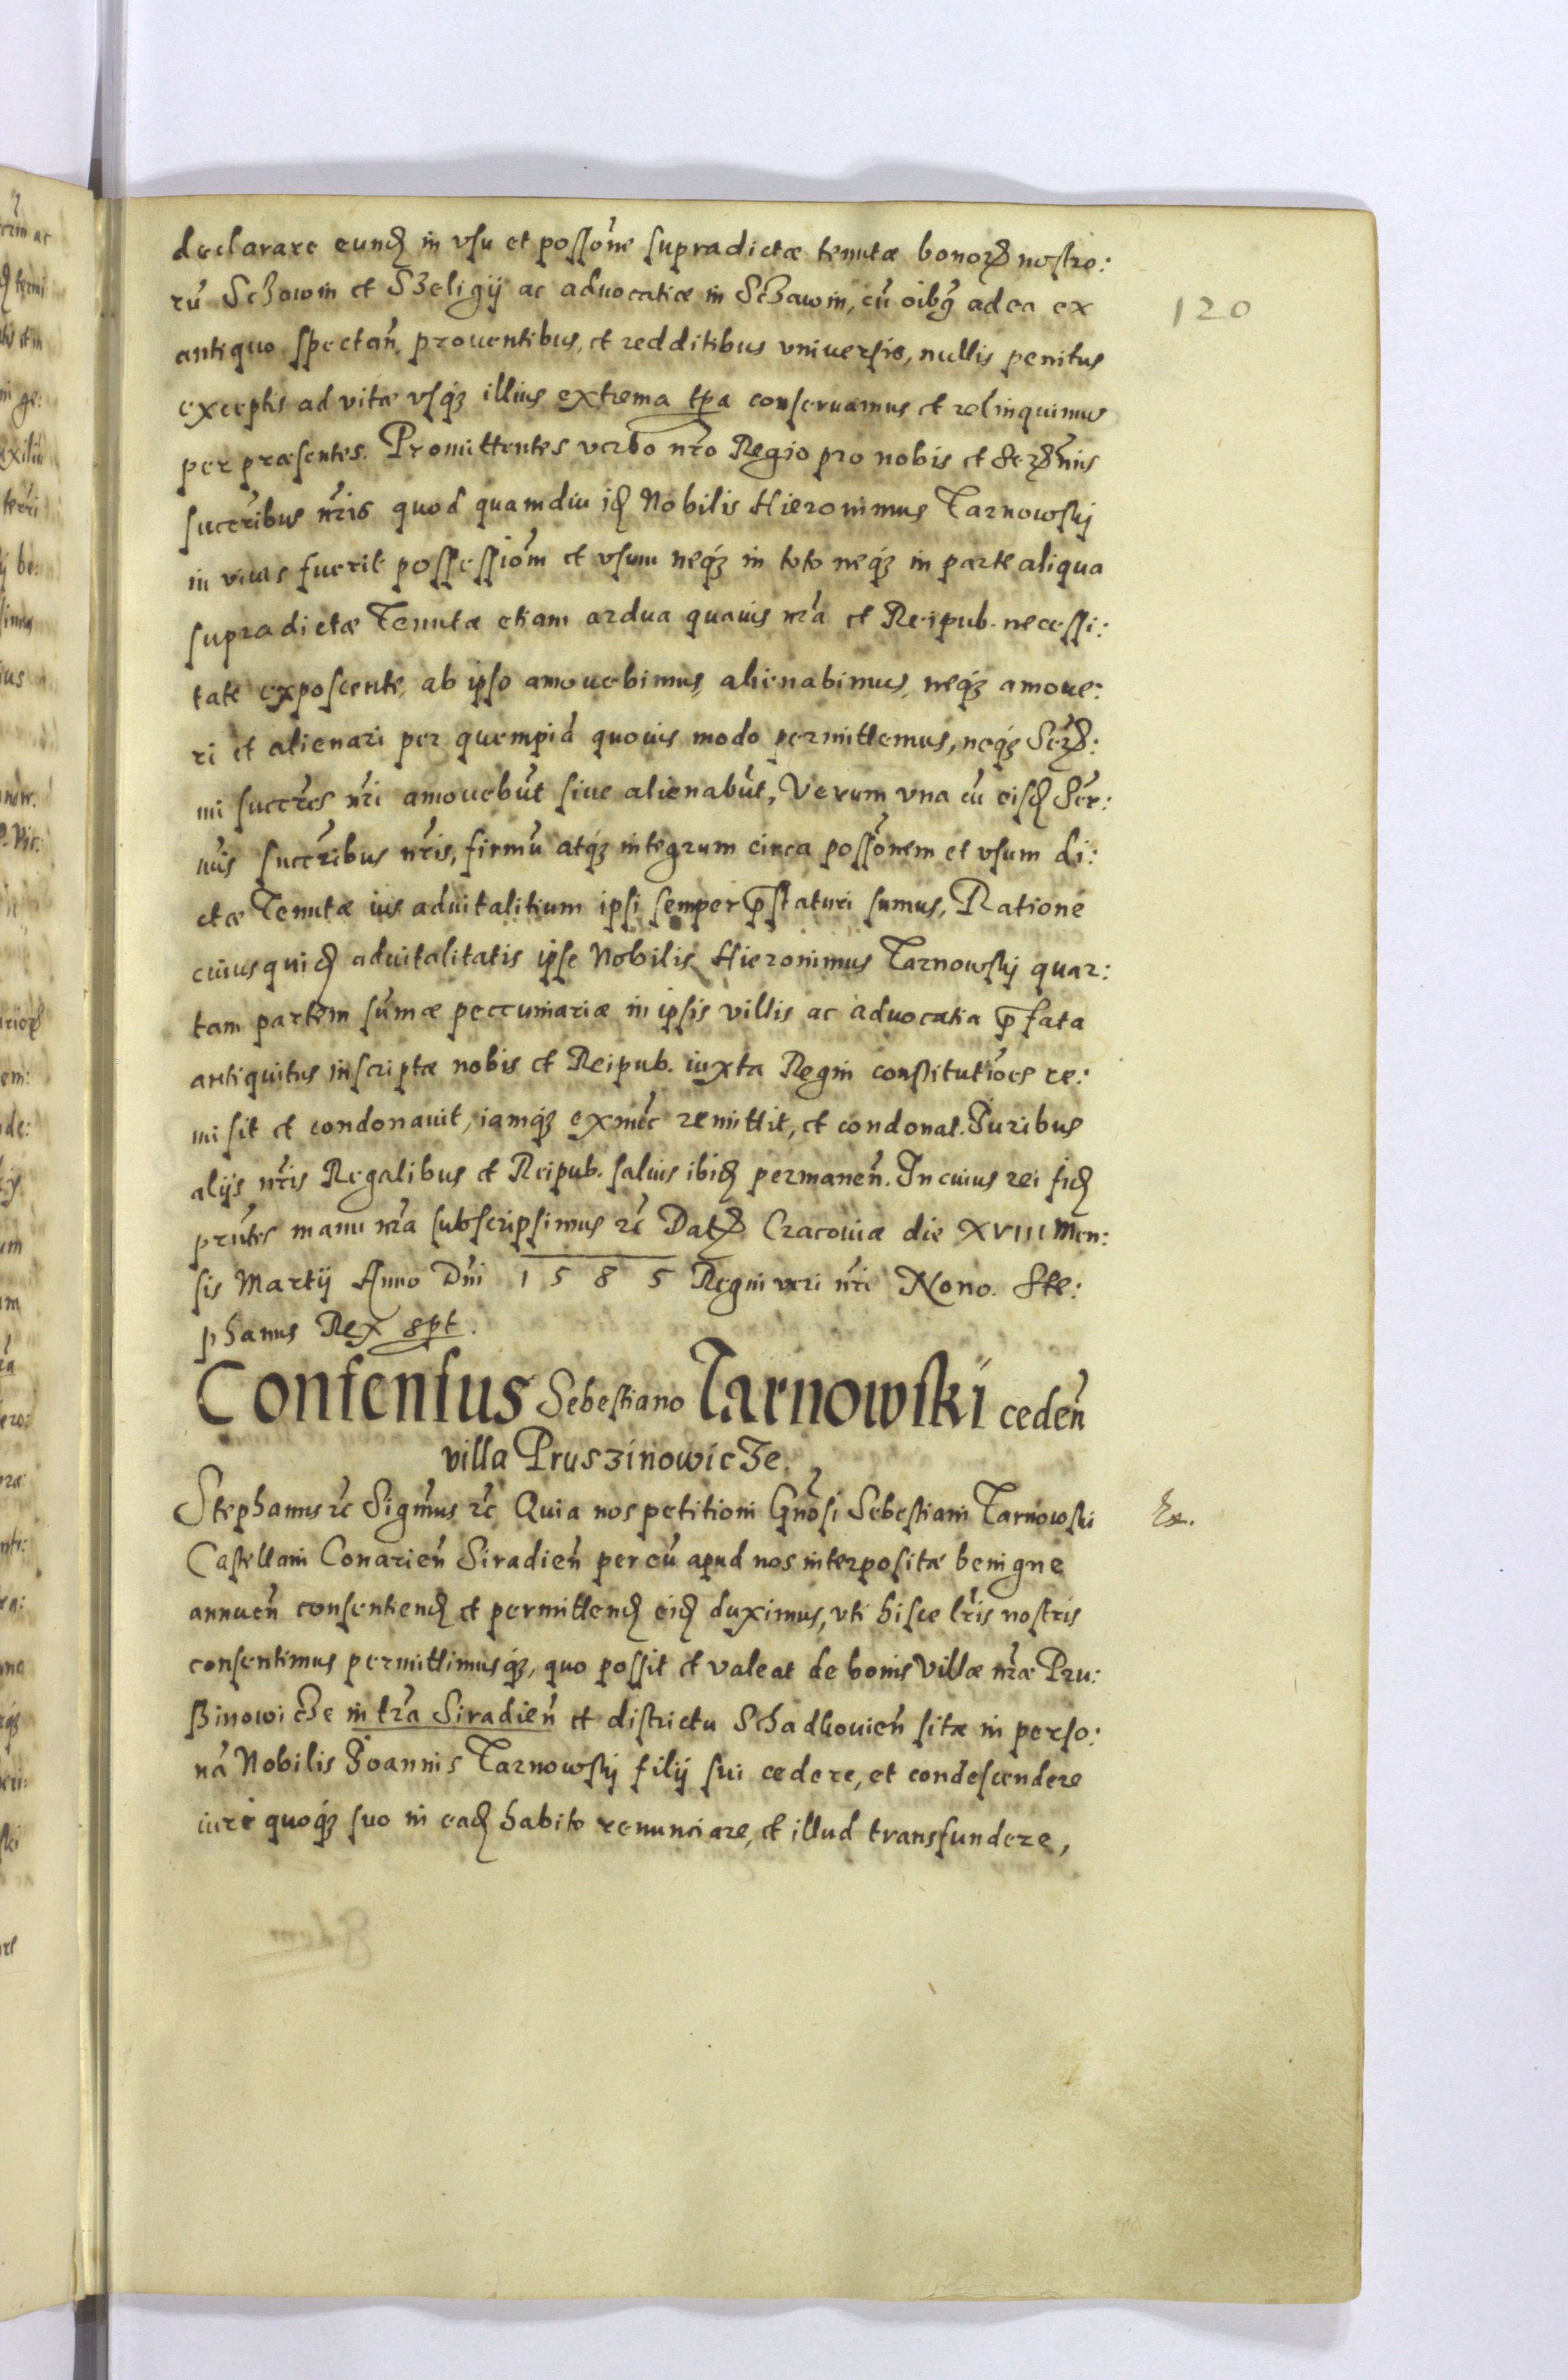 declarare eundꝫ in vsu et possõne supradictæ tenutæ bonorꝫ nostro:
rũ Schowin et Szeligij ac aduocatiæ in Schawin, cũ oibꝫ ad ea ex
antiquo spectañ, prouentibus, et redditibus vniuersis, nullis penitus
exceptis ad vitæ vsqꝫ illius extrema tpa conseruamus et relinquimus
per præsentes. Promittentes verbo nr̃o Regio pro nobis et Serꝫmis
succr̃ibus nr̃is quod quamdiu idꝫ Nobilis Hieronimus Tarnowskj
in viuis fuerit possessiom̃ et vsum neqꝫ in toto neqꝫ in parte aliqua
supradictæ Tenutæ etiam ardua quauis nr̃a et Reipub. necessi:
tate exposcente, ab ipso amouebimus, alienabimus, neqꝫ amoue:
ri et alienari per quempiã quouis modo permittemus, neqꝫ Serꝫ:
mi succr̃es nr̃i amouebũt siue alienabũt, Verum vna cũ eisdꝫ Ser̃:
nis succr̃ibus nr̃is, firmũ atqꝫ integrum circa possõnem et vsum di:
ctæ Tenutæ ius aduitalitium ipsi semper p̃staturi sumus, Ratione
cuiusquidꝫ aduitalitatis ipse Nobilis Hieronimus Tarnowskj quar:
tam partem sũmæ peccuniariæ in ipsis villis ac aduocatia p̃fata
antiquitus inscriptæ nobis et Reipub. iuxta Regni constitutiões re:
misit et condonauit, iamqꝫ exnũc remittit, et condonat. Juribus
alijs nr̃is Regalibus et Reipub. saluis ibidꝫ permaneñ. In cuius rei fidꝫ
prñtes manu nr̃a subscripsimus ꝛc̃ Datꝫ Cracouiæ die XVIII Men:
sis Martij Anno Dñi 1585 Regni veri nr̃i Nono. Ste:
phanus Rex spt.
Consensus Sebestiano Tarnowski cedeñ
villa Pruszinowicze.
Stephanus ꝛc̃ Sigñmus ꝛc̃ Quia nos petitioni Gñosi Sebestiani Tarnowski
Castellani Conarieñ Siradieñ per eũ apud nos interpositæ benigne
annueñ consentiendꝫ et permittendꝫ eidꝫ duximus, vti hisce lr̃is nostris
consentimus permittimusqꝫ, quo possit et valeat de bonis Villæ nr̃æ Pru:
szinowicze in tr̃a Siradieñ et districtu Schadkouieñ sitæ in perso:
nã Nobilis Joannis Tarnowskj filij sui cedere, et condescendere
iure quoqꝫ suo in eadꝫ habito renunciare, et illud transfundere,
120